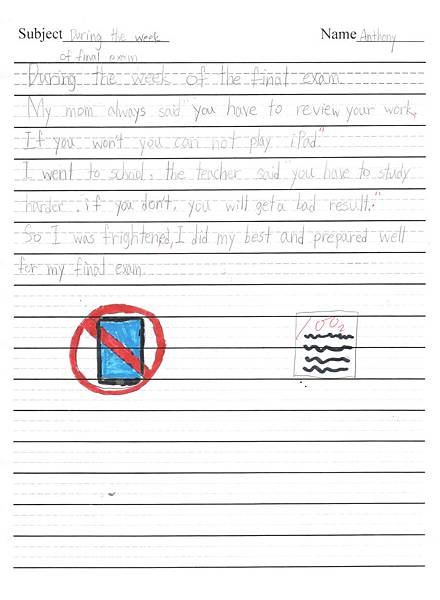 Subject During the week Name Anthony
of final exam
During the week of the final exam
My mom always said "you have to review your work,
If you won't you can not play iPad."
I went to school. the teacher said "you have to study
harder. if you don't, you will get a bad result."
So I was frightened, I did my best and prepared well
for my final exam.
100